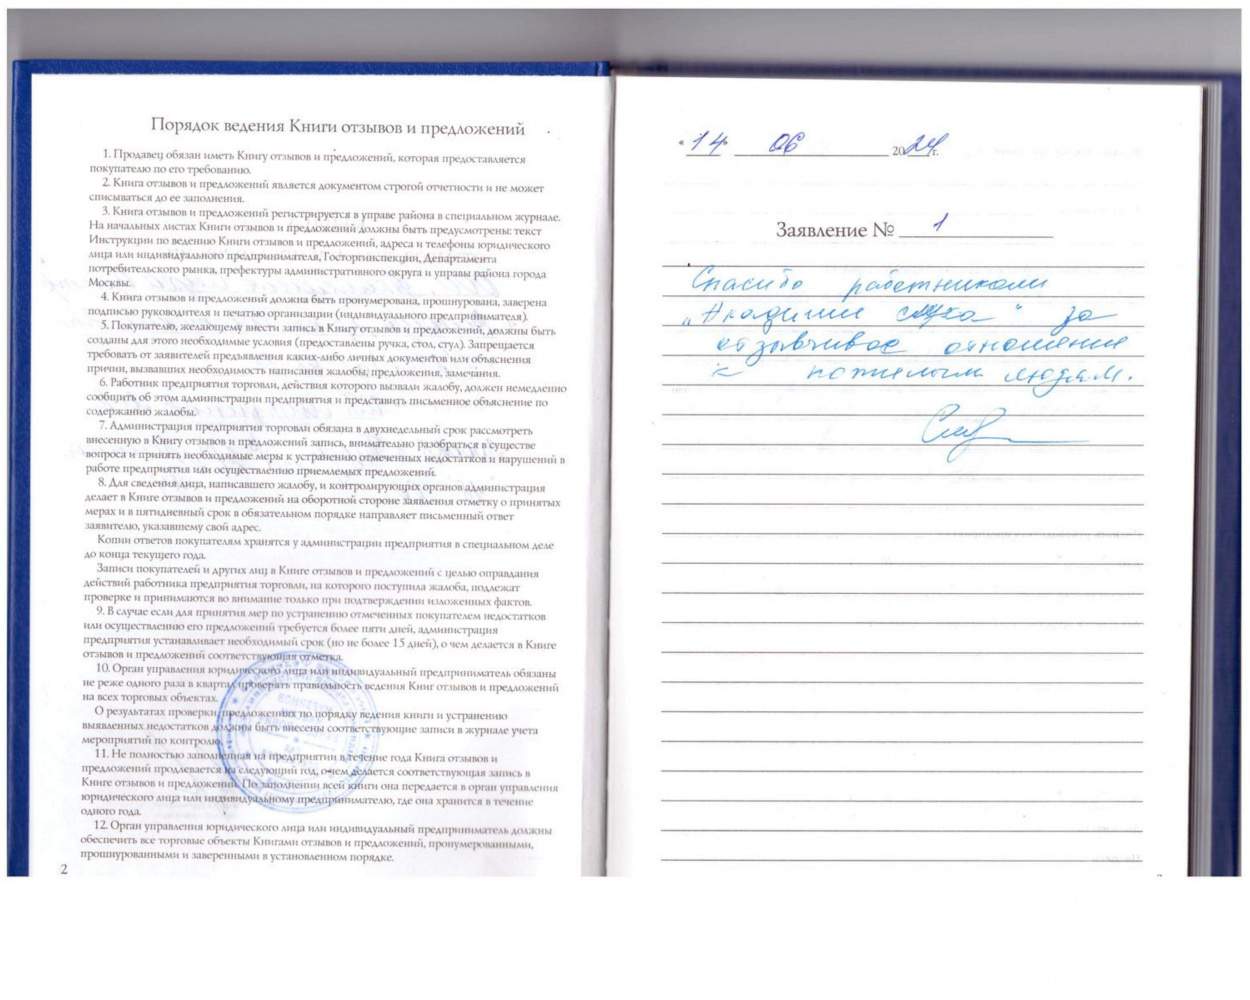 Порядок ведения Книги отзывов и предложений
1. Продавец обязан иметь Книгу отзывов и предложений, которая предоставляется
покупателю по его требованию.
2. Книга отзывов и предложений является документом строгой отчетности и не может
списываться до ее заполнения.
3. Книга отзывов и предложений регистрируется в управе района в специальном журнале.
На начальных листах Книги отзывов и предложений должны быть предусмотрены: текст
Инструкции по ведению Книги отзывов и предложений, адреса и телефоны юридического
лица или индивидуального предпринимателя, Госторгинспекции, Департамента
потребительского рынка, префектуры административного округа и управы района города
Москвы.
4. Книга отзывов и предложений должна быть пронумерована, прошнурована, заверена
подписью руководителя и печатью организации (индивидуального предпринимателя).
5. Покупателю, желающему внести запись в Книгу отзывов и предложений, должны быть
созданы для этого необходимые условия (предоставлены ручка, стол, стул). Запрещается
требовать от заявителей предъявления каких-либо личных документов или объяснения
причин, вызвавших необходимость написания жалобы, предложения, замечания.
6. Работник предприятия торговли, действия которого вызвали жалобу, должен немедленно
сообщить об этом администрации предприятия и представить письменное объяснение по
содержанию жалобы.
7. Администрация предприятия торговли обязана в двухнедельный срок рассмотреть
внесенную в Книгу отзывов и предложений запись, внимательно разобраться в существе
вопроса и принять необходимые меры к устранению отмеченных недостатков и нарушений в
работе предприятия или осуществлению приемлемых предложений.
8. Для сведения лица, написавшего жалобу, и контролирующих органов администрация
делает в Книге отзывов и предложений на оборотной стороне заявления отметку о принятых
мерах и в пятидневный срок в обязательном порядке направляет письменный ответ
заявителю, указавшему свой адрес.
Копии ответов покупателям хранятся у администрации предприятия в специальном деле
до конца текущего года.
Записи покупателей и других лиц в Книге отзывов и предложений с целью оправдания
действий работника предприятия торговли, на которого поступила жалоба, подлежат
проверке и принимаются во внимание только при подтверждении изложенных фактов.
9. В случае если для принятия мер по устранению отмеченных покупателем недостатков
или осуществлению его предложений требуется более пяти дней, администрация
предприятия устанавливает необходимый срок (но не более 15 дней), о чем делается в Книге
отзывов и предложений соответствующая отметка.
10. Орган управления юридического лица или индивидуальный предприниматель обязаны
не реже одного раза в квартал проверять правильность ведения Книг отзывов и предложений
на всех торговых объектах.
О результатах проверки, предложениях по порядку ведения книги и устранению
выявленных недостатков должны быть внесены соответствующие записи в журнале учета
мероприятий по контролю.
11. Не полностью заполненная на предприятии в течение года Книга отзывов и
предложений продлевается на следующий год, о чем делается соответствующая запись в
Книге отзывов и предложений. По заполнении всей книги она передается в орган управления
юридического лица или индивидуальному предпринимателю, где она хранится в течение
одного года.
12. Орган управления юридического лица или индивидуальный предприниматель должны
обеспечить все торговые объекты Книгами отзывов и предложений, пронумерованными,
прошнурованными и заверенными в установленном порядке.
2
"14" 06 2024 г.
Заявление № 1
Спасибо работникам
„Академии слуха" за
отзывчивое отношение
к пожилым людям.